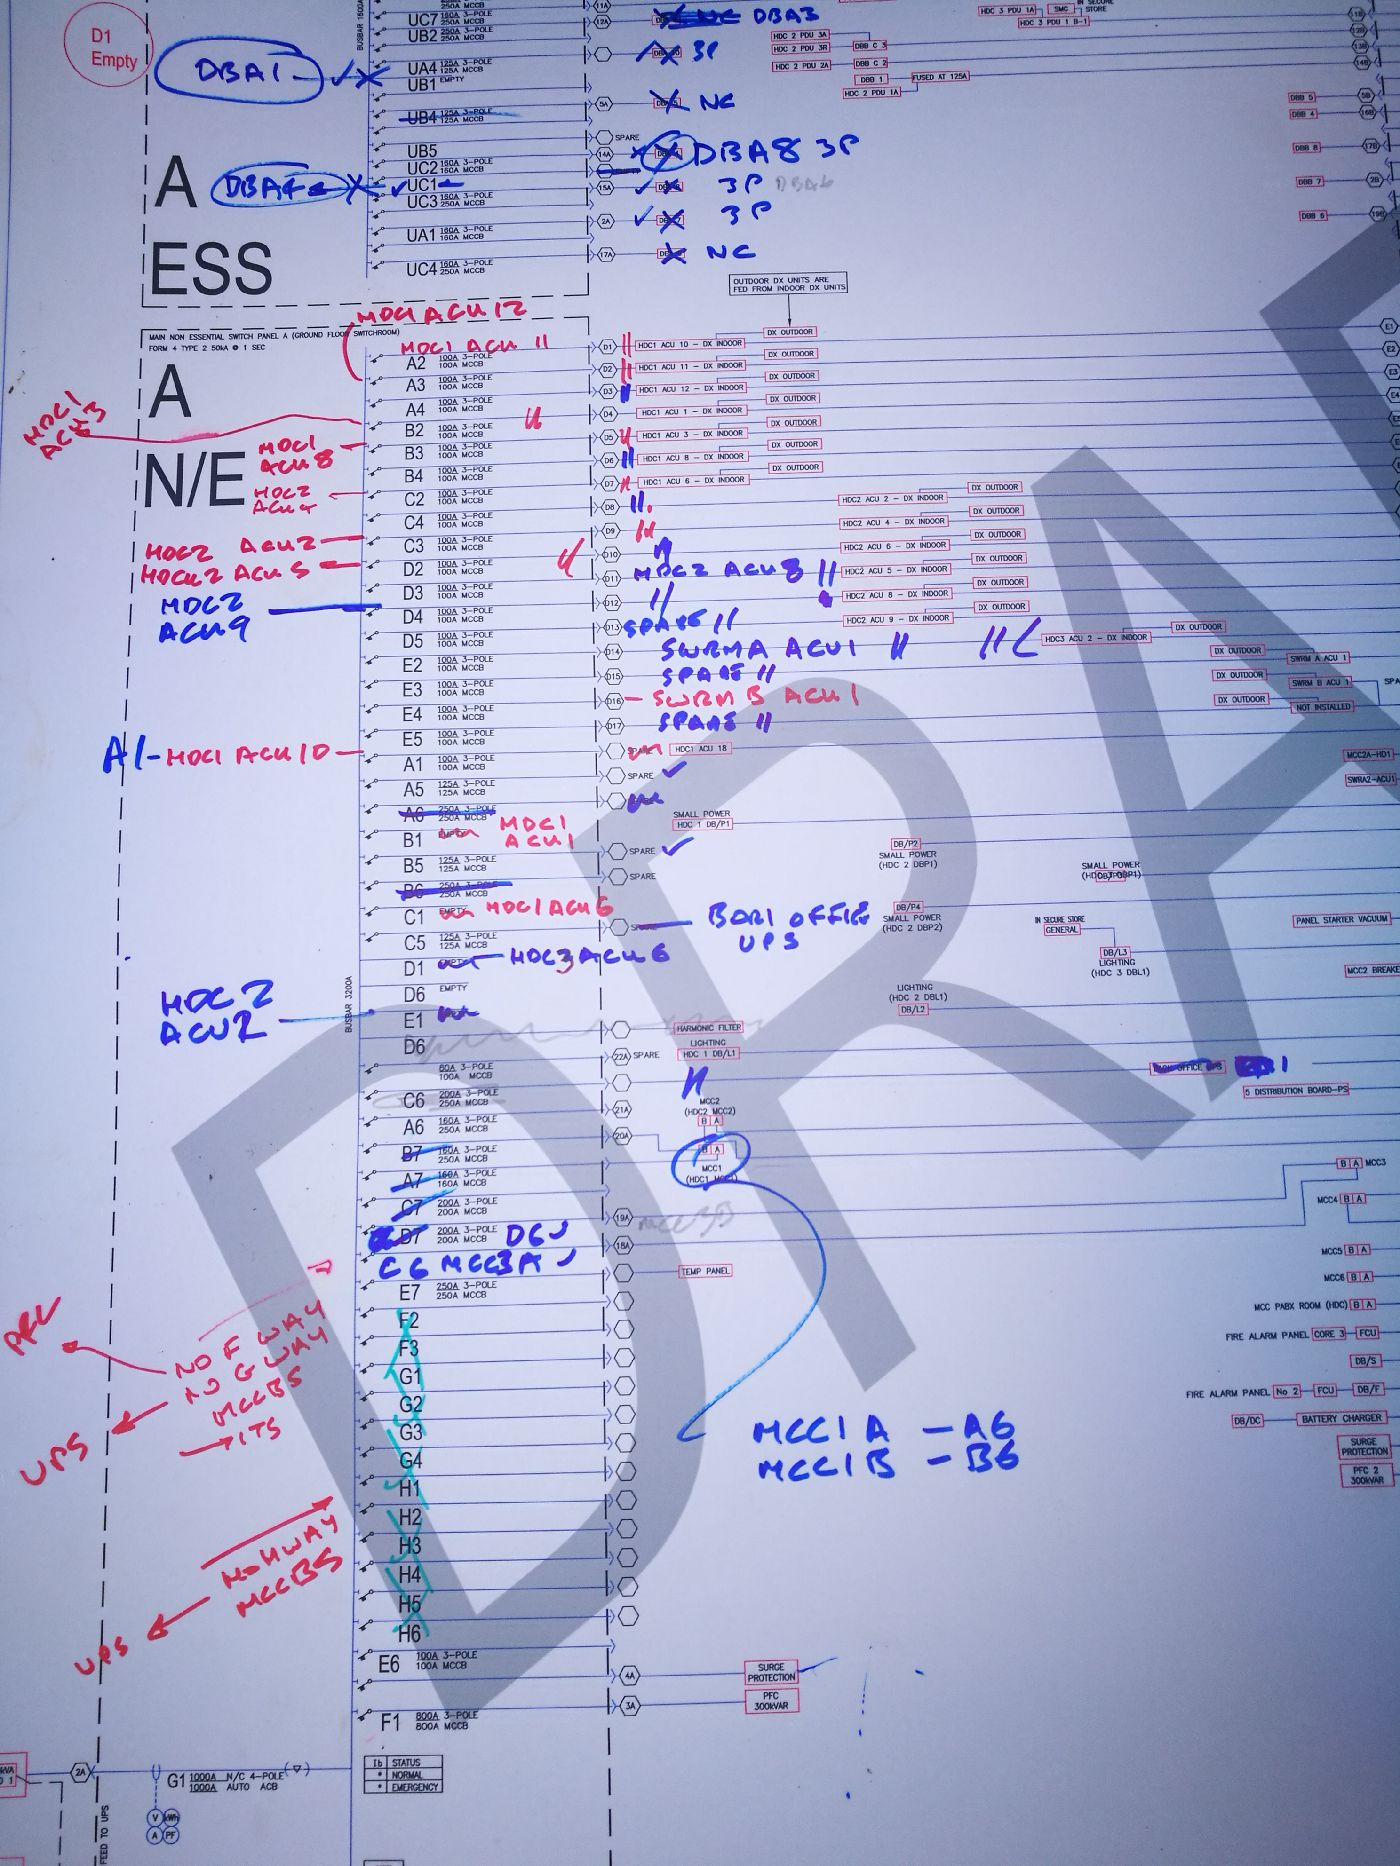 D1
Empty
DBA1
A
ESS
UC7 250A MCCB
UB2 250A 3-POLE 250A MCCB
UA4 125A 3-POLE 125A MCCB
UB1 EMPTY
UB4 125A 3-POLE 125A MCCB
UB5
UC2 160A 3-POLE 160A MCCB
UC1
UC3 160A 3-POLE 250A MCCB
UA1 160A 3-POLE 160A MCCB
UC4 160A 3-POLE 250A MCCB
11A
12A
NC DBA3
3P
5A
NC
SPARE
14A
DBA8 3P
15A
3P DBA6
2A
3P
17A
NC
IN SECURE STORE
HDC 3 PDU 1A
SMC
HDC 3 PDU 1 B-1
HDC 2 PDU 3A
HDC 2 PDU 3R
DBB C 3
HDC 2 PDU 2A
DBB C 2
DBB 1
FUSED AT 125A
HDC 2 PDU 1A
DBB 5
DBB 4
DBB 8
DBB 7
DBB 6
OUTDOOR DX UNITS ARE
FED FROM INDOOR DX UNITS
MAIN NON ESSENTIAL SWITCH PANEL A (GROUND FLOOR SWITCHROOM)
FORM 4 TYPE 2 50kA @ 1 SEC
A
N/E
HDC1 ACU 12
HDC1 ACU 11
HDC1 ACU 3
HDC1 ACU 8
HDC2 ACU 4
HDC2 ACU 2
HDC2 ACU 5
HDC2 ACU 9
A1- HDC1 ACU 10
A2 100A 3-POLE 100A MCCB
A3 100A 3-POLE 100A MCCB
A4 100A 3-POLE 100A MCCB
B2 100A 3-POLE 100A MCCB
B3 100A 3-POLE 100A MCCB
B4 100A 3-POLE 100A MCCB
C2 100A 3-POLE 100A MCCB
C4 100A 3-POLE 100A MCCB
C3 100A 3-POLE 100A MCCB
D2 100A 3-POLE 100A MCCB
D3 100A 3-POLE 100A MCCB
D4 100A 3-POLE 100A MCCB
D5 100A 3-POLE 100A MCCB
E2 100A 3-POLE 100A MCCB
E3 100A 3-POLE 100A MCCB
E4 100A 3-POLE 100A MCCB
E5 100A 3-POLE 100A MCCB
A1 100A 3-POLE 100A MCCB
A5 125A 3-POLE 125A MCCB
A6 250A 3-POLE 250A MCCB
B1 EMPTY HDC1 ACU1
B5 125A 3-POLE 125A MCCB
B6 250A 3-POLE 250A MCCB
C1 EMPTY HDC1 ACU6
C5 125A 3-POLE 125A MCCB
D1 EMPTY HDC3 ACU 6
D6 EMPTY
E1
D6
80A 3-POLE 100A MCCB
C6 200A 3-POLE 250A MCCB
A6 160A 3-POLE 250A MCCB
B7 160A 3-POLE 250A MCCB
A7 160A 3-POLE 160A MCCB
C7 200A 3-POLE 200A MCCB
D7 200A 3-POLE 200A MCCB D6
C6 MCC3A
E7 250A 3-POLE 250A MCCB
F2
F3
G1
G2
G3
G4
H1
H2
H3
H4
H5
H6
E6 100A 3-POLE 100A MCCB
F1 800A 3-POLE 800A MCCB
BUSBAR 3200A
HDC2
ACU2
D1 HDC1 ACU 10 - DX INDOOR DX OUTDOOR
D2 HDC1 ACU 11 - DX INDOOR DX OUTDOOR
D3 HDC1 ACU 12 - DX INDOOR DX OUTDOOR
D4 HDC1 ACU 1 - DX INDOOR DX OUTDOOR
D5 HDC1 ACU 3 - DX INDOOR DX OUTDOOR
D6 HDC1 ACU 8 - DX INDOOR DX OUTDOOR
D7 HDC1 ACU 6 - DX INDOOR DX OUTDOOR
D8 HDC2 ACU 2 - DX INDOOR DX OUTDOOR
D9 HDC2 ACU 4 - DX INDOOR DX OUTDOOR
D10 HDC2 ACU 6 - DX INDOOR DX OUTDOOR
D11 HDC2 ACU 8 HDC2 ACU 5 - DX INDOOR DX OUTDOOR
D12 HDC2 ACU 8 - DX INDOOR DX OUTDOOR
D13 SPARE HDC2 ACU 9 - DX INDOOR DX OUTDOOR
D14 SWRMA ACU1 HDC3 ACU 2 - DX INDOOR DX OUTDOOR
D15 SPARE DX OUTDOOR SWRM A ACU 1
D16 SWRM B ACU 1 DX OUTDOOR SWRM B ACU 1
D17 SPARE DX OUTDOOR NOT INSTALLED
SPARE HDC1 ACU 18
SPARE
MCC2A-HD1
SWRA2-ACU1
SMALL POWER
HDC 1 DB/P1
SPARE
SPARE
DB/P2
SMALL POWER
(HDC 2 DBP1)
SMALL POWER
DB/P4
SMALL POWER
(HDC 2 DBP2)
BDR1 OFFICE
UPS
IN SECURE STORE
GENERAL
DB/L3
LIGHTING
(HDC 3 DBL1)
PANEL STARTER VACUUM
MCC2 BREAKE
LIGHTING
(HDC 2 DBL1)
DB/L2
HARMONIC FILTER
LIGHTING
22A SPARE HDC 1 DB/L1
5 DISTRIBUTION BOARD-PS
MCC2
(HDC2 MCC2)
B A
21A
20A
B A
MCC1
19A MCC3B
18A
TEMP PANEL
B A MCC3
MCC4 B A
MCC5 B A
MCC6 B A
MCC PABX ROOM (HDC) B A
FIRE ALARM PANEL CORE 3 FCU
DB/S
FIRE ALARM PANEL No 2 FCU DB/F
DB/DC BATTERY CHARGER
SURGE
PROTECTION
PFC 2
300kVAR
MCC1A - A6
MCC1B - B6
NO F WAY
NO G WAY
MCCBS
ITS
UPS
NO H WAY
MCCBS
UPS
4A SURGE
PROTECTION
3A PFC
300kVAR
2A
G1 1000A N/C 4-POLE
1000A AUTO ACB
V kWh
A PF
FEED TO UPS
Ib STATUS
* NORMAL
* EMERGENCY
DRA